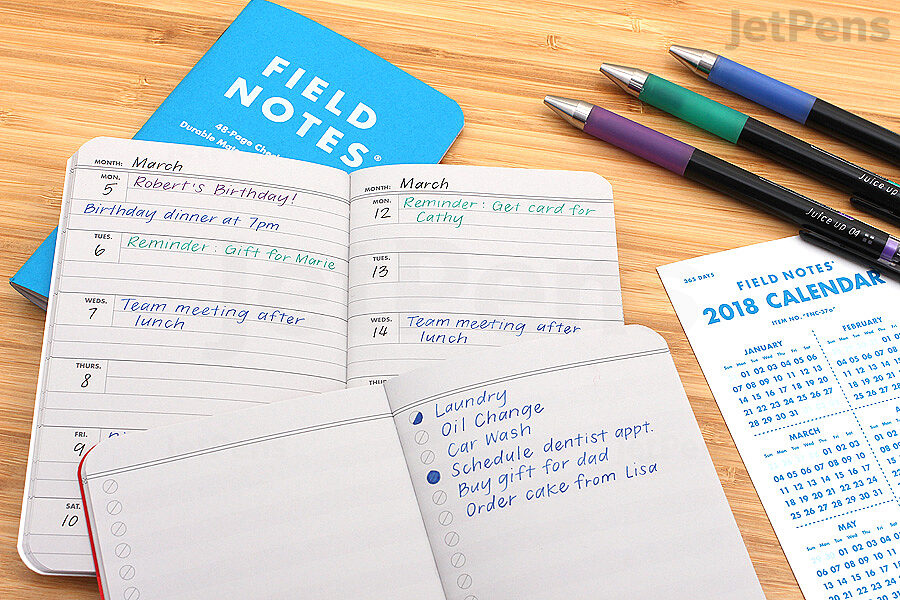 JetPens
FIELD
NOTES®
48-Page
Durable
MONTH: March
MON.
5
Robert's Birthday!
Birthday dinner at 7pm
TUES.
6
Reminder: Gift for Marie
WEDS.
7
Team meeting after
lunch
THURS.
8
FRI.
9
SAT.
10
MONTH: March
MON.
12
Reminder: Get card for
Cathy
TUES.
13
WEDS.
14
Team meeting after
lunch
Laundry
Oil Change
Car Wash
Schedule dentist appt.
Buy gift for dad
Order cake from Lisa
Juice up
Juice up 04
365 DAYS
FIELD NOTES®
2018 CALENDAR
ITEM NO. "FNC-37a"
JANUARY
Sun Mon Tue Wed Thu Fri Sat
01 02 03 04 05 06
07 08 09 10 11 12 13
14 15 16 17 18 19 20
21 22 23 24 25 26 27
28 29 30 31
FEBRUARY
Sun Mon Tue Wed
01
04 05 06 07 08
11 12 13 14 15
18 19 20 21
25 26 27 28
MARCH
Sun Mon Tue Wed Thu Fri Sat
01 02 03
04 05 06 07 08 09 10
11 12 13 14 15 16 17
18 19 20 21 22 23 24
25 26 27 28 29 30 31
MAY
Sun Mon Tue Wed Thu Fri Sat
01 02 03 04 05
06 07 08 09 10 11